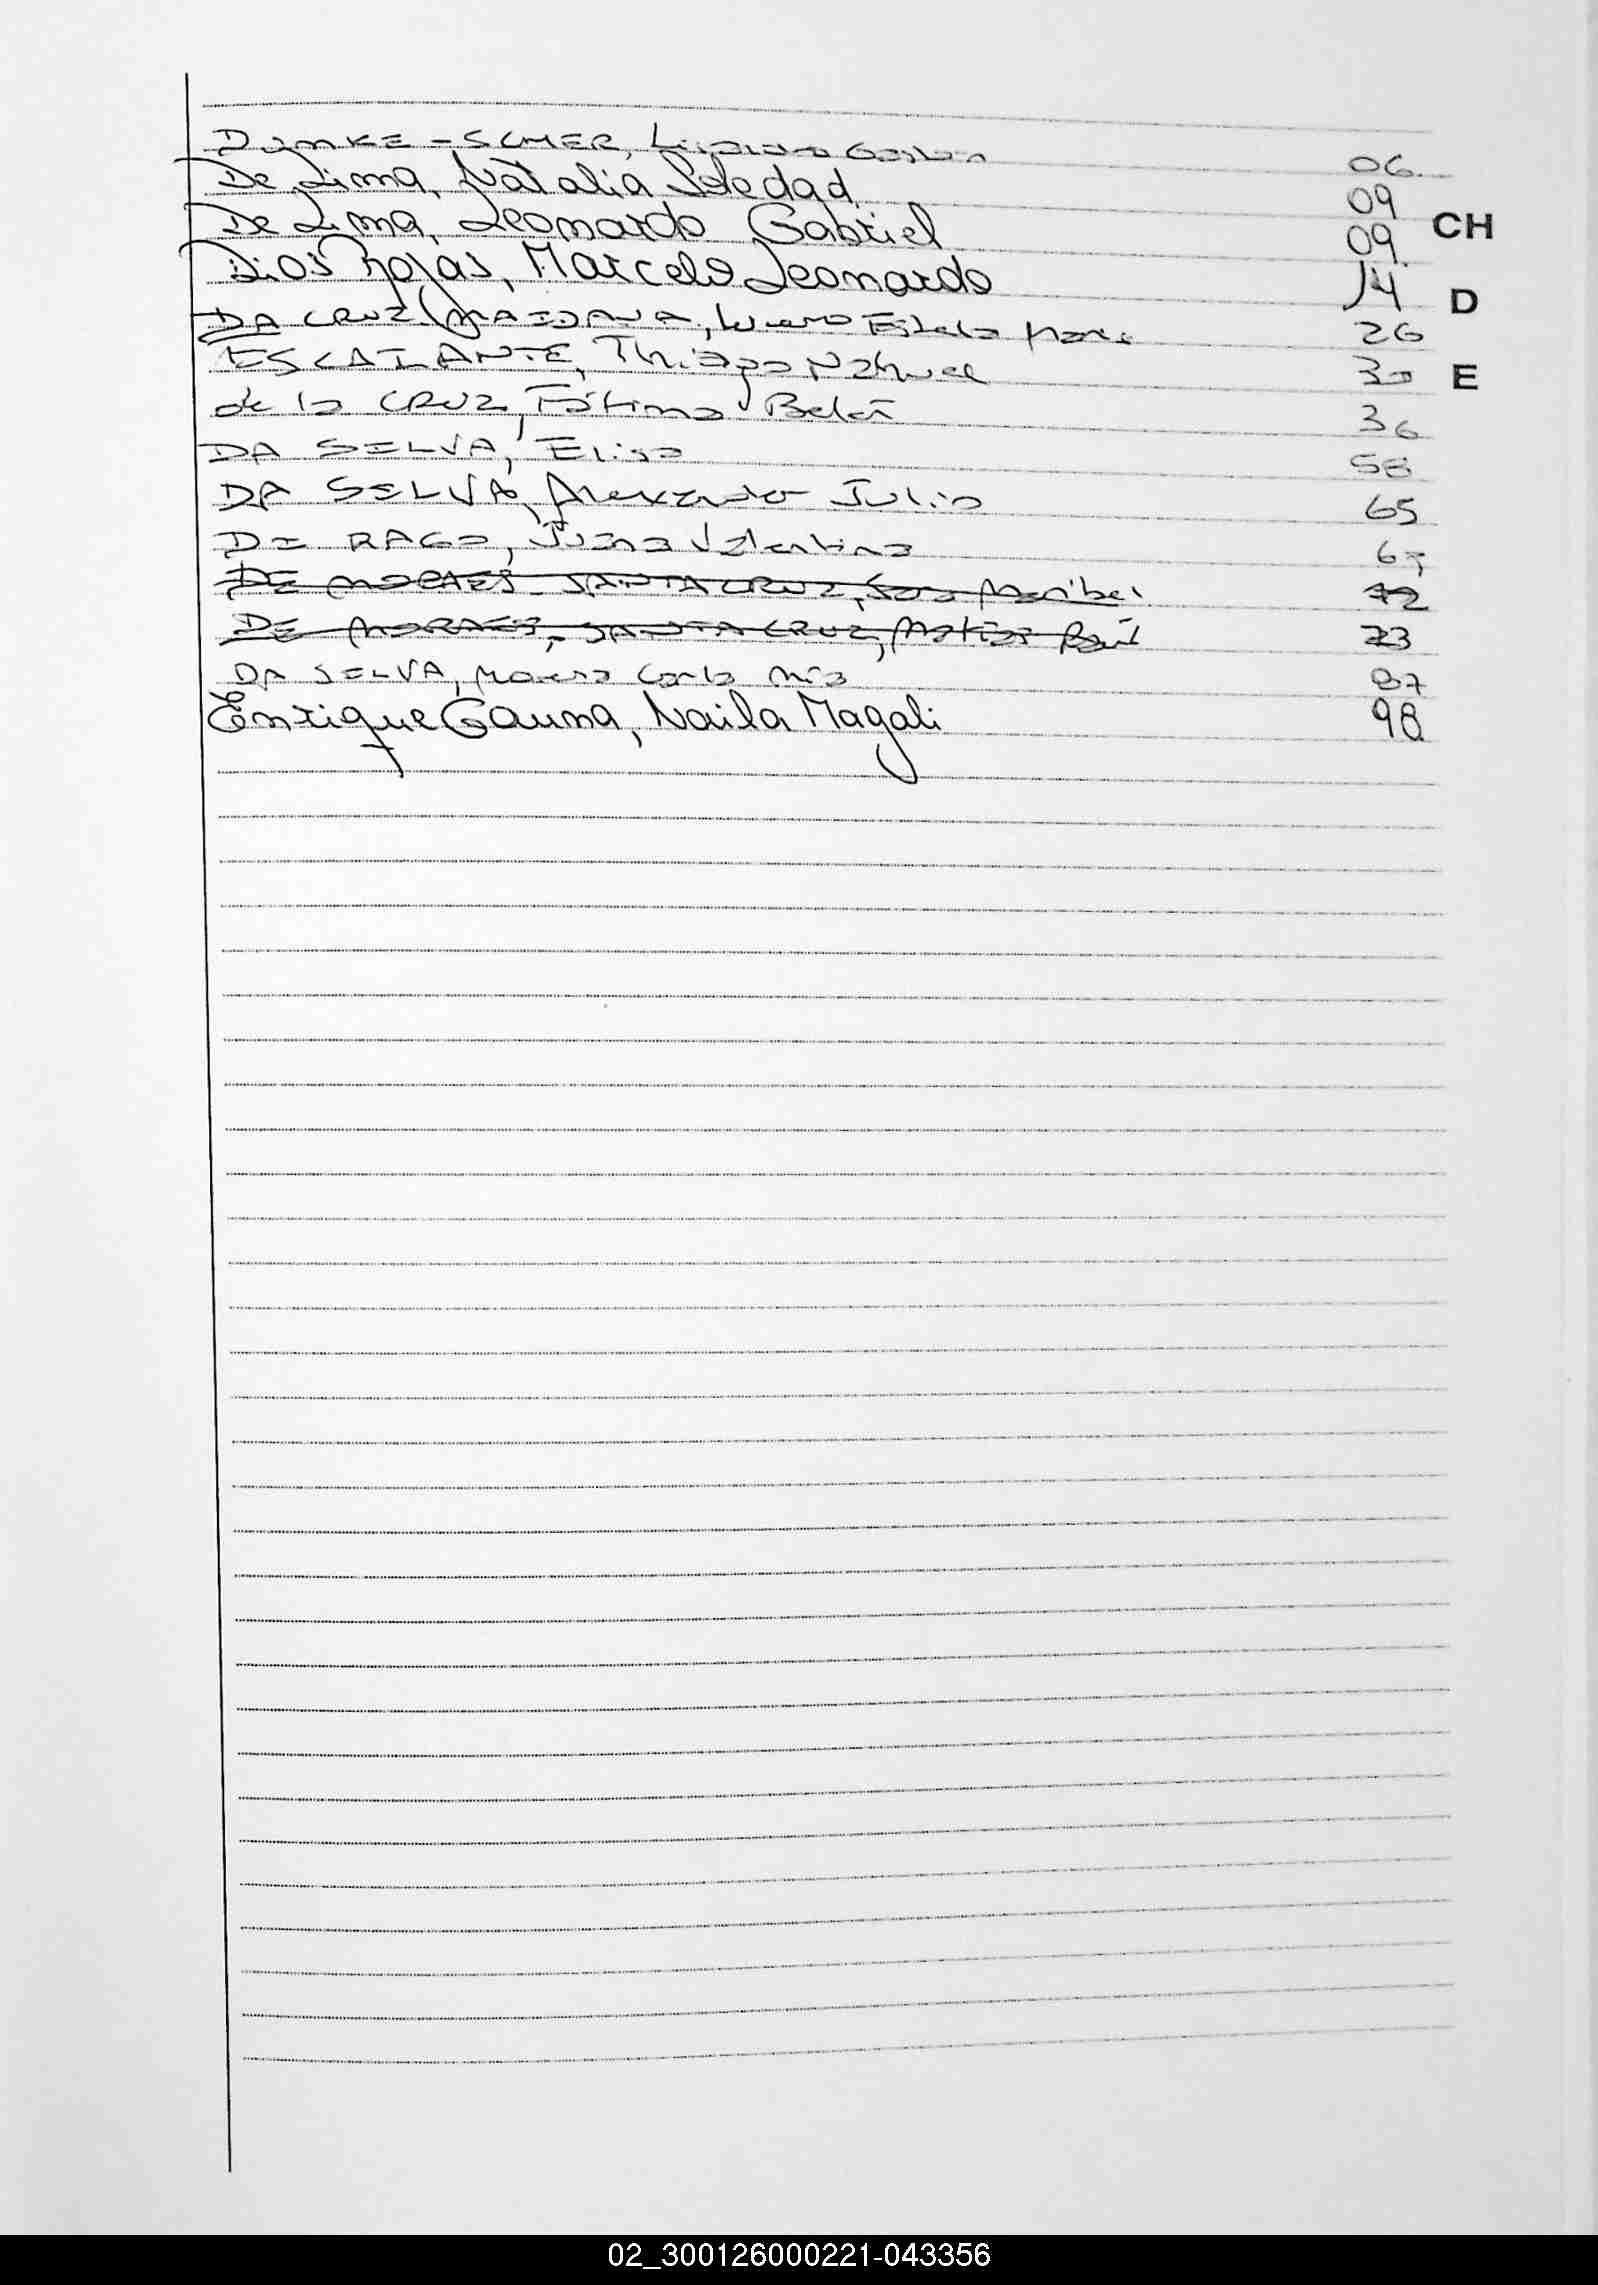 DUMKE - SCHER, Luciano Gastón 06
De Lima, Natalia Soledad 09
De Lima, Leonardo Gabriel 09
CH
Dios Rojas, Marcelo Leonardo 14
D
DA CRUZ MAIDANA, Estela 26
ESCALANTE, Thiago Nahuel 30
E
de la CRUZ, Fátima Belén 36
DA SELVA, Elisa 58
DA SELVA, Alexander Julio 65
DI RAGO, Juana Valentina 67
DE MORAES - SANTA CRUZ, Sara Maribel 72
DE MORAES, SANTA CRUZ, Matías Raúl 73
DA SELVA, Carla Mía 87
Enrique Gauna, Naila Magali 98
02_300126000221-043356